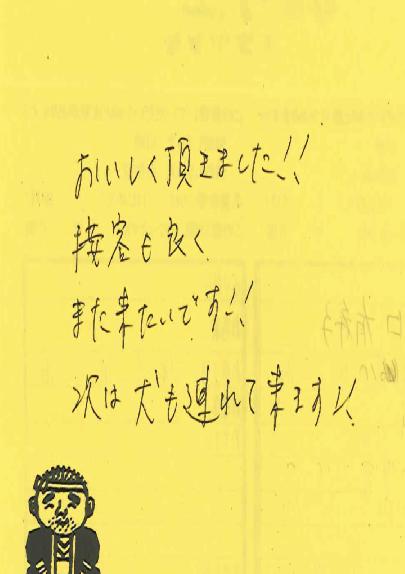 おいしく頂きました!!
接客も良く
また来たいです!!
次は犬も連れて来ます!!